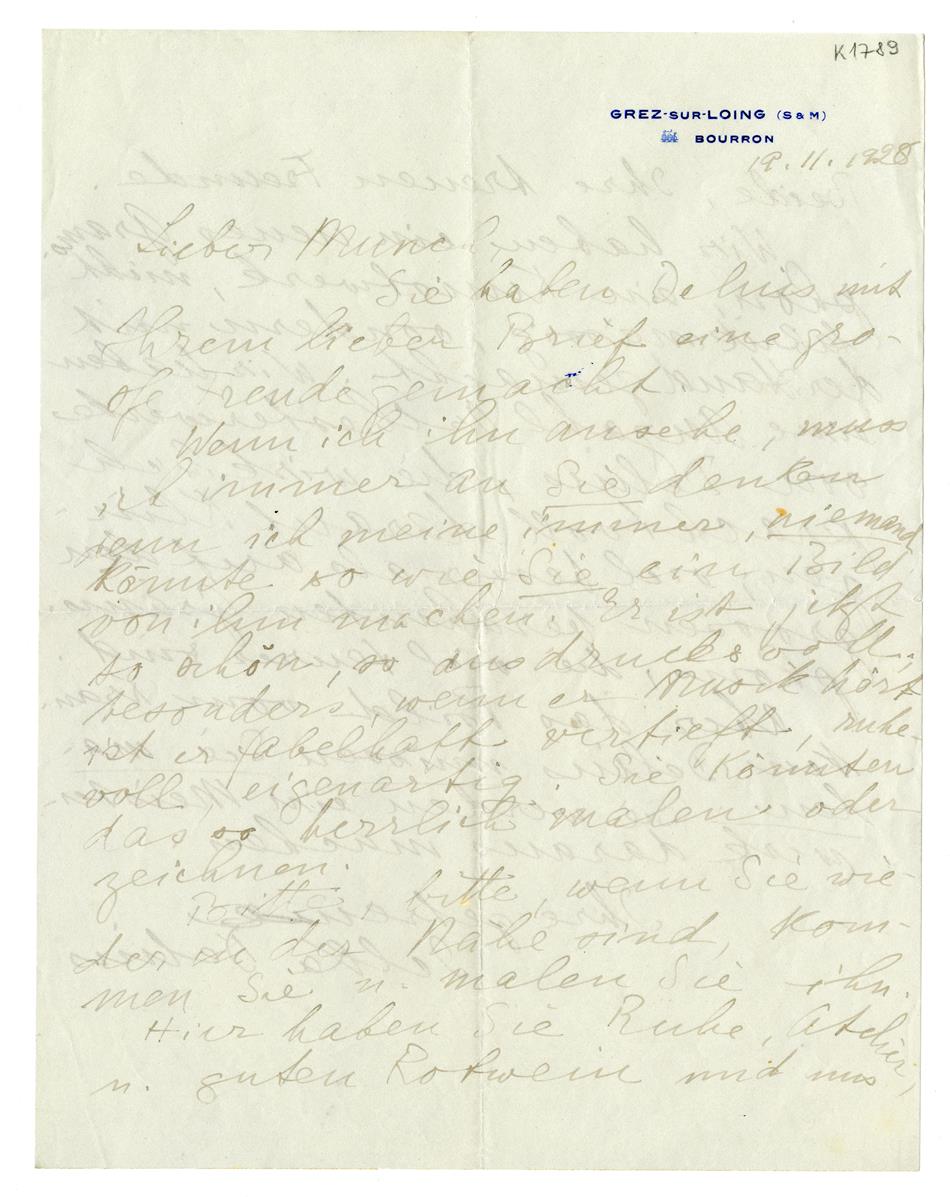 K1789
GREZ-SUR-LOING (S & M)
BOURRON
19. 11. 1928
Lieber Munch,
Sie haben Delius mit
Ihrem lieben Brief eine gro-
ße Freude gemacht.
Wenn ich ihn ansehe, muss
ich immer an Sie denken
denn ich meine immer, niemand
könnte so wie Sie ein Bild
von ihm machen. Er ist jetzt
so schön, so ausdrucksvoll,
besonders, wenn er Musik hört
ist er fabelhaft vertieft, ruhe-
voll eigenartig. Sie könnten
das so herrlich malen oder
zeichnen.
Bitte, bitte, wenn Sie wie-
der in der Nähe sind, kom-
men Sie u. malen Sie ihn.
Hier haben Sie Ruhe, Atelier,
u. guten Rotwein und uns